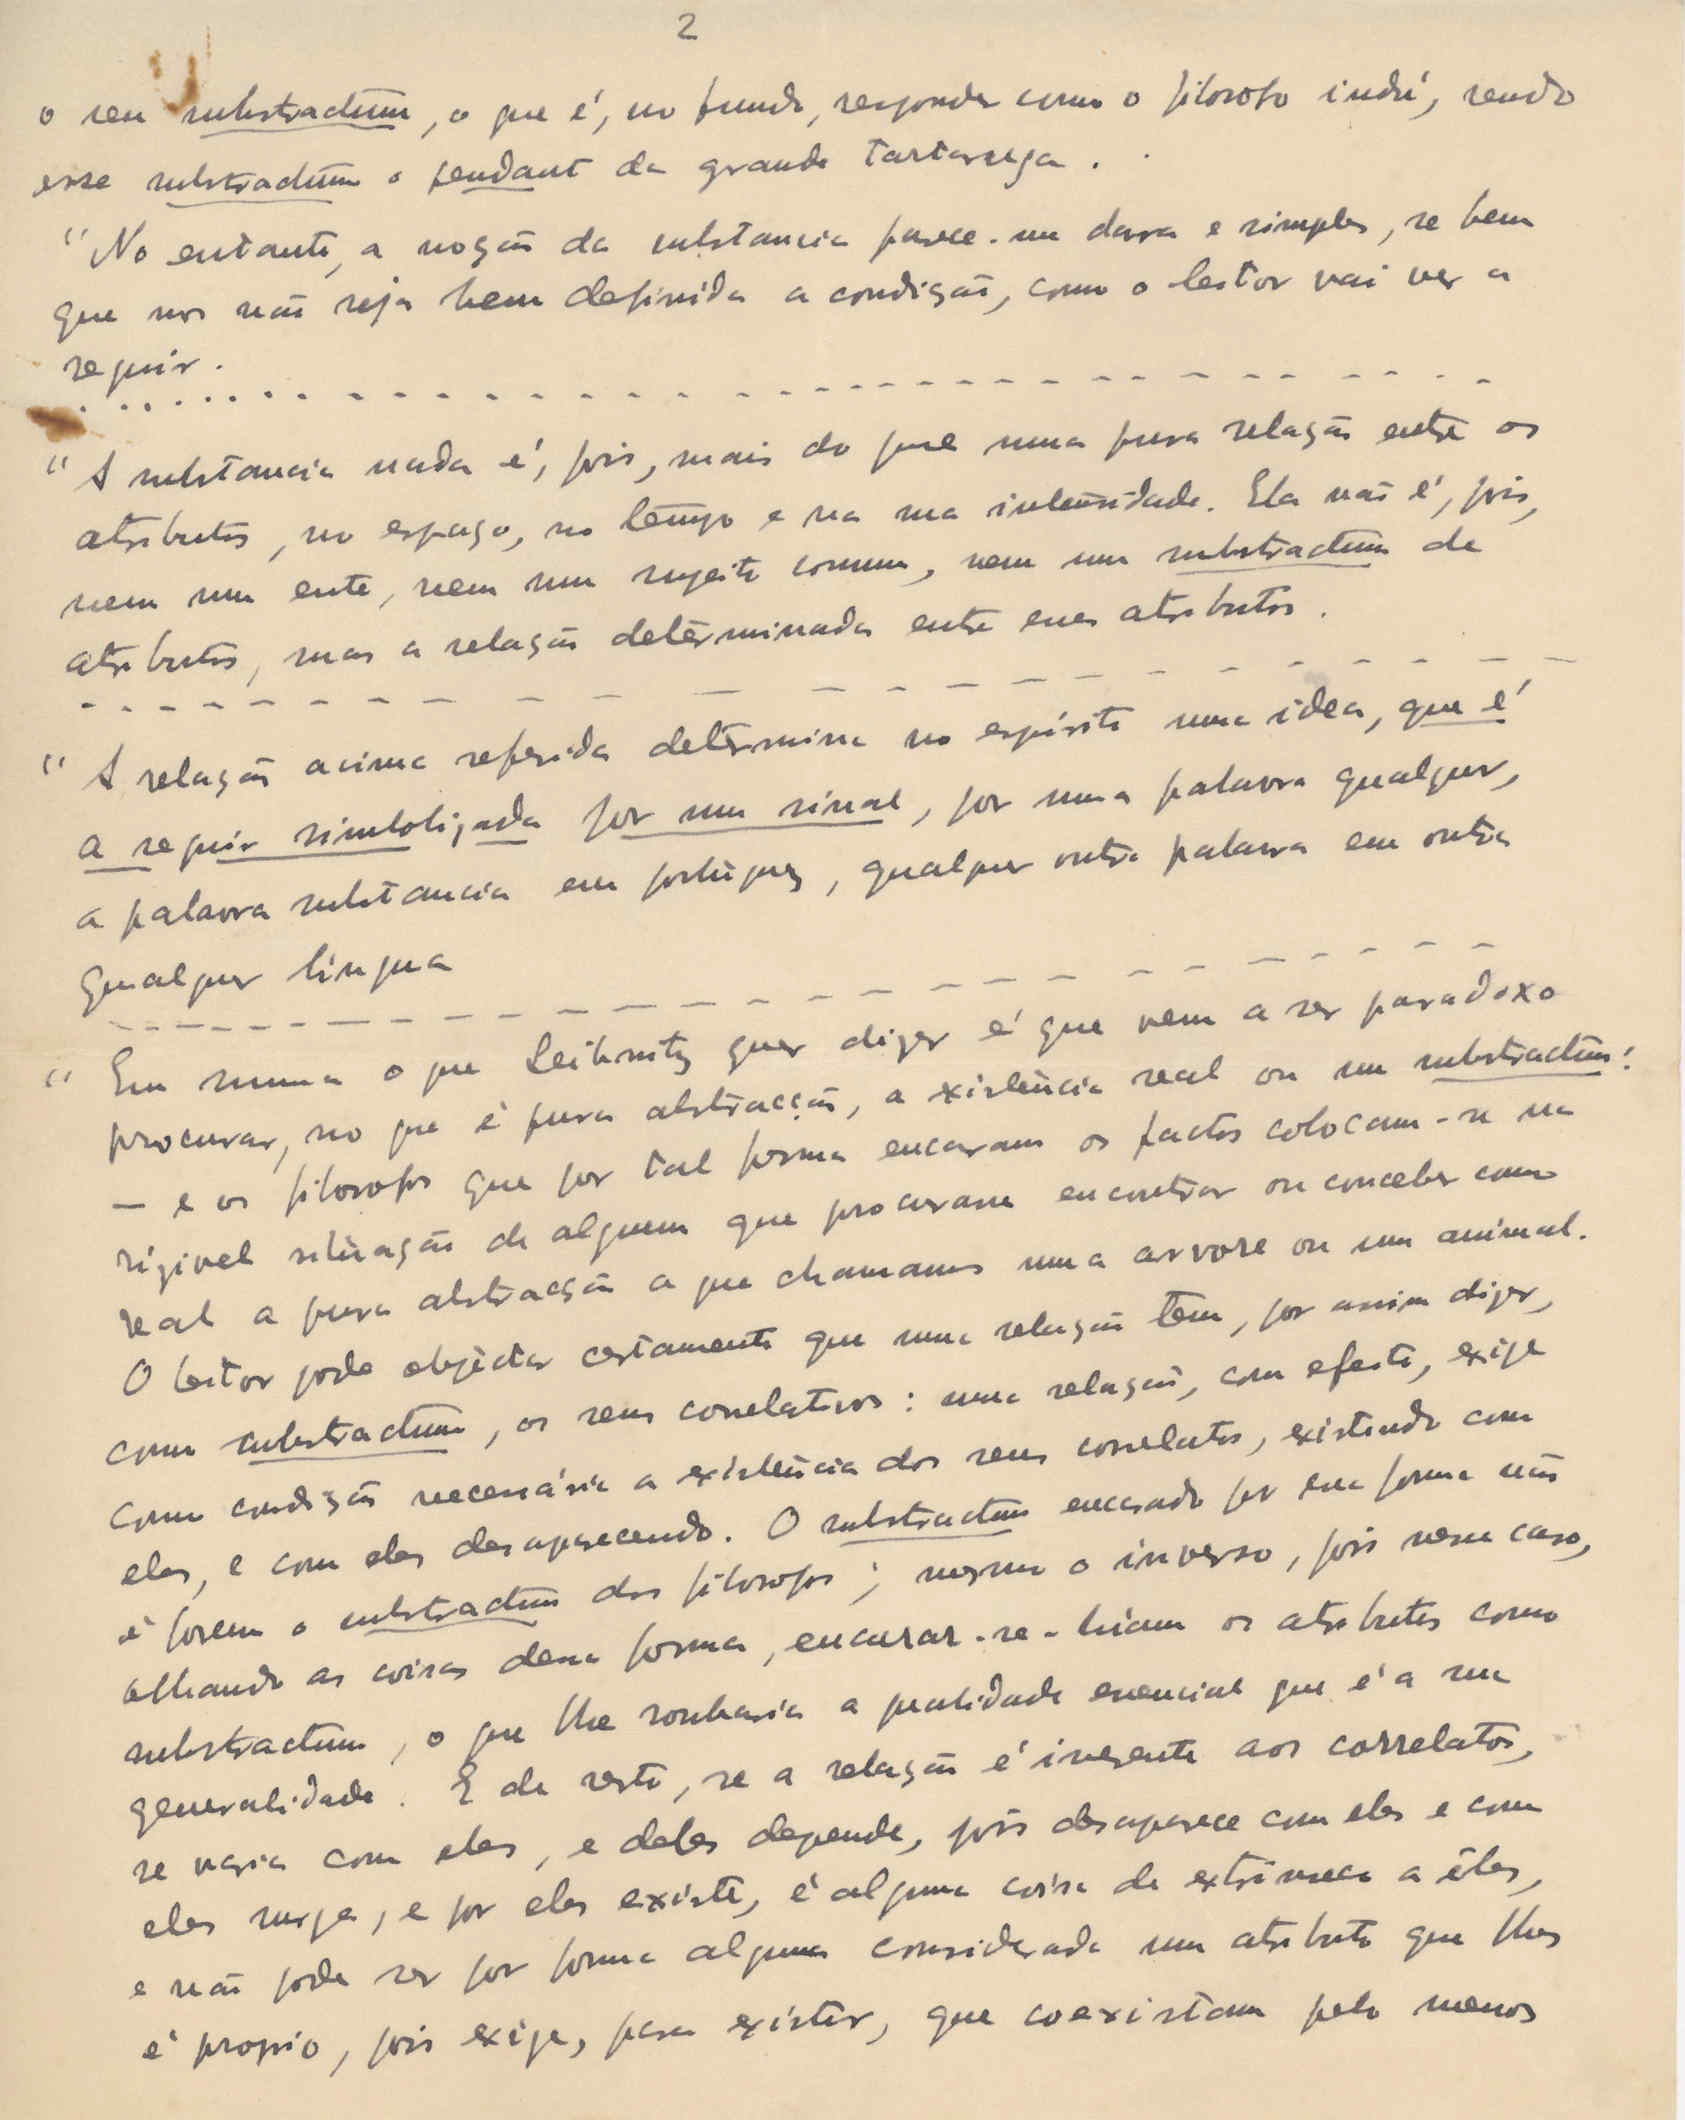 2
o seu substractum, o que é, no fundo, responder como o filosofo indú, sendo
esse substractum o pendant da grande tartaruga.
"No entanto, a noção da substancia parece-me clara e simples, se bem
que nos não seja bem definida a condição, como o leitor vai ver a
seguir.
"A substancia nada é, pois, mais do que uma pura relação entre os
atributos, no espaço, no tempo e na sua intensidade. Ela não é, pois,
nem um ente, nem um sujeito comum, nem um substractum de
atributos, mas a relação determinada entre esses atributos.
"A relação acima referida determina no espirito uma idea, que é
a seguir simbolizada por um sinal, por uma palavra qualquer,
a palavra substancia em portuguez, qualquer outra palavra em outra
qualquer lingua
"Em summa o que Leibnitz quer dizer é que vem a ser paradoxo
procurar, no que é pura abstracção, a existência real ou um substractum:
— e os filosofos que por tal forma encaram os factos colocam-se na
risivel situação de alguem que procurasse encontrar ou conceber como
real a pura abstracção a que chamamos uma arvore ou um animal.
O leitor pode objectar certamente que uma relação tem, por assim dizer,
como substractum, os seus correlativos: uma relação, com efeito, exige
como condição necessária a existência dos seus correlatos, existindo com
eles, e com eles desaparecendo. O substractum encarado por essa forma não
é porem o substractum dos filosofos; mesmo o inverso, pois nesse caso,
olhando as coisas dessa forma, encarar-se-hiam os atributos como
substractum, o que lhe roubaria a qualidade essencial que é a sua
generalidade. E de resto, se a relação é inerente aos correlatos,
se varia com eles, e deles depende, pois desaparece com eles e com
eles surge, e por eles existe, é alguma coisa de extrinseco a êles,
e não pode ser por forma alguma considerada um atributo que lhes
é proprio, pois exige, para existir, que coexistam pelo menos